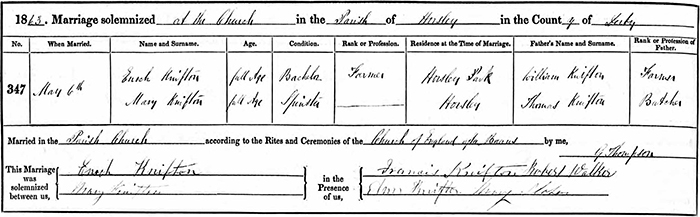 1863. Marriage solemnized at the Church in the Parish of Horsley in the County of Derby
No. When Married. Name and Surname. Age. Condition. Rank or Profession. Residence at the Time of Marriage. Father's Name and Surname. Rank or Profession of Father.
347 May 6th Enoch Knifton full Age Bachelor Farmer Horsley Park William Knifton Farmer
Mary Knifton full Age Spinster Horsley Thomas Knifton Butcher
Married in the Parish Church according to the Rites and Ceremonies of the Church of England after Banns by me,
G. Thompson
This Marriage was solemnized between us, Enoch Knifton in the Presence of us, Francis Knifton Robert Walker
Mary Knifton Knifton